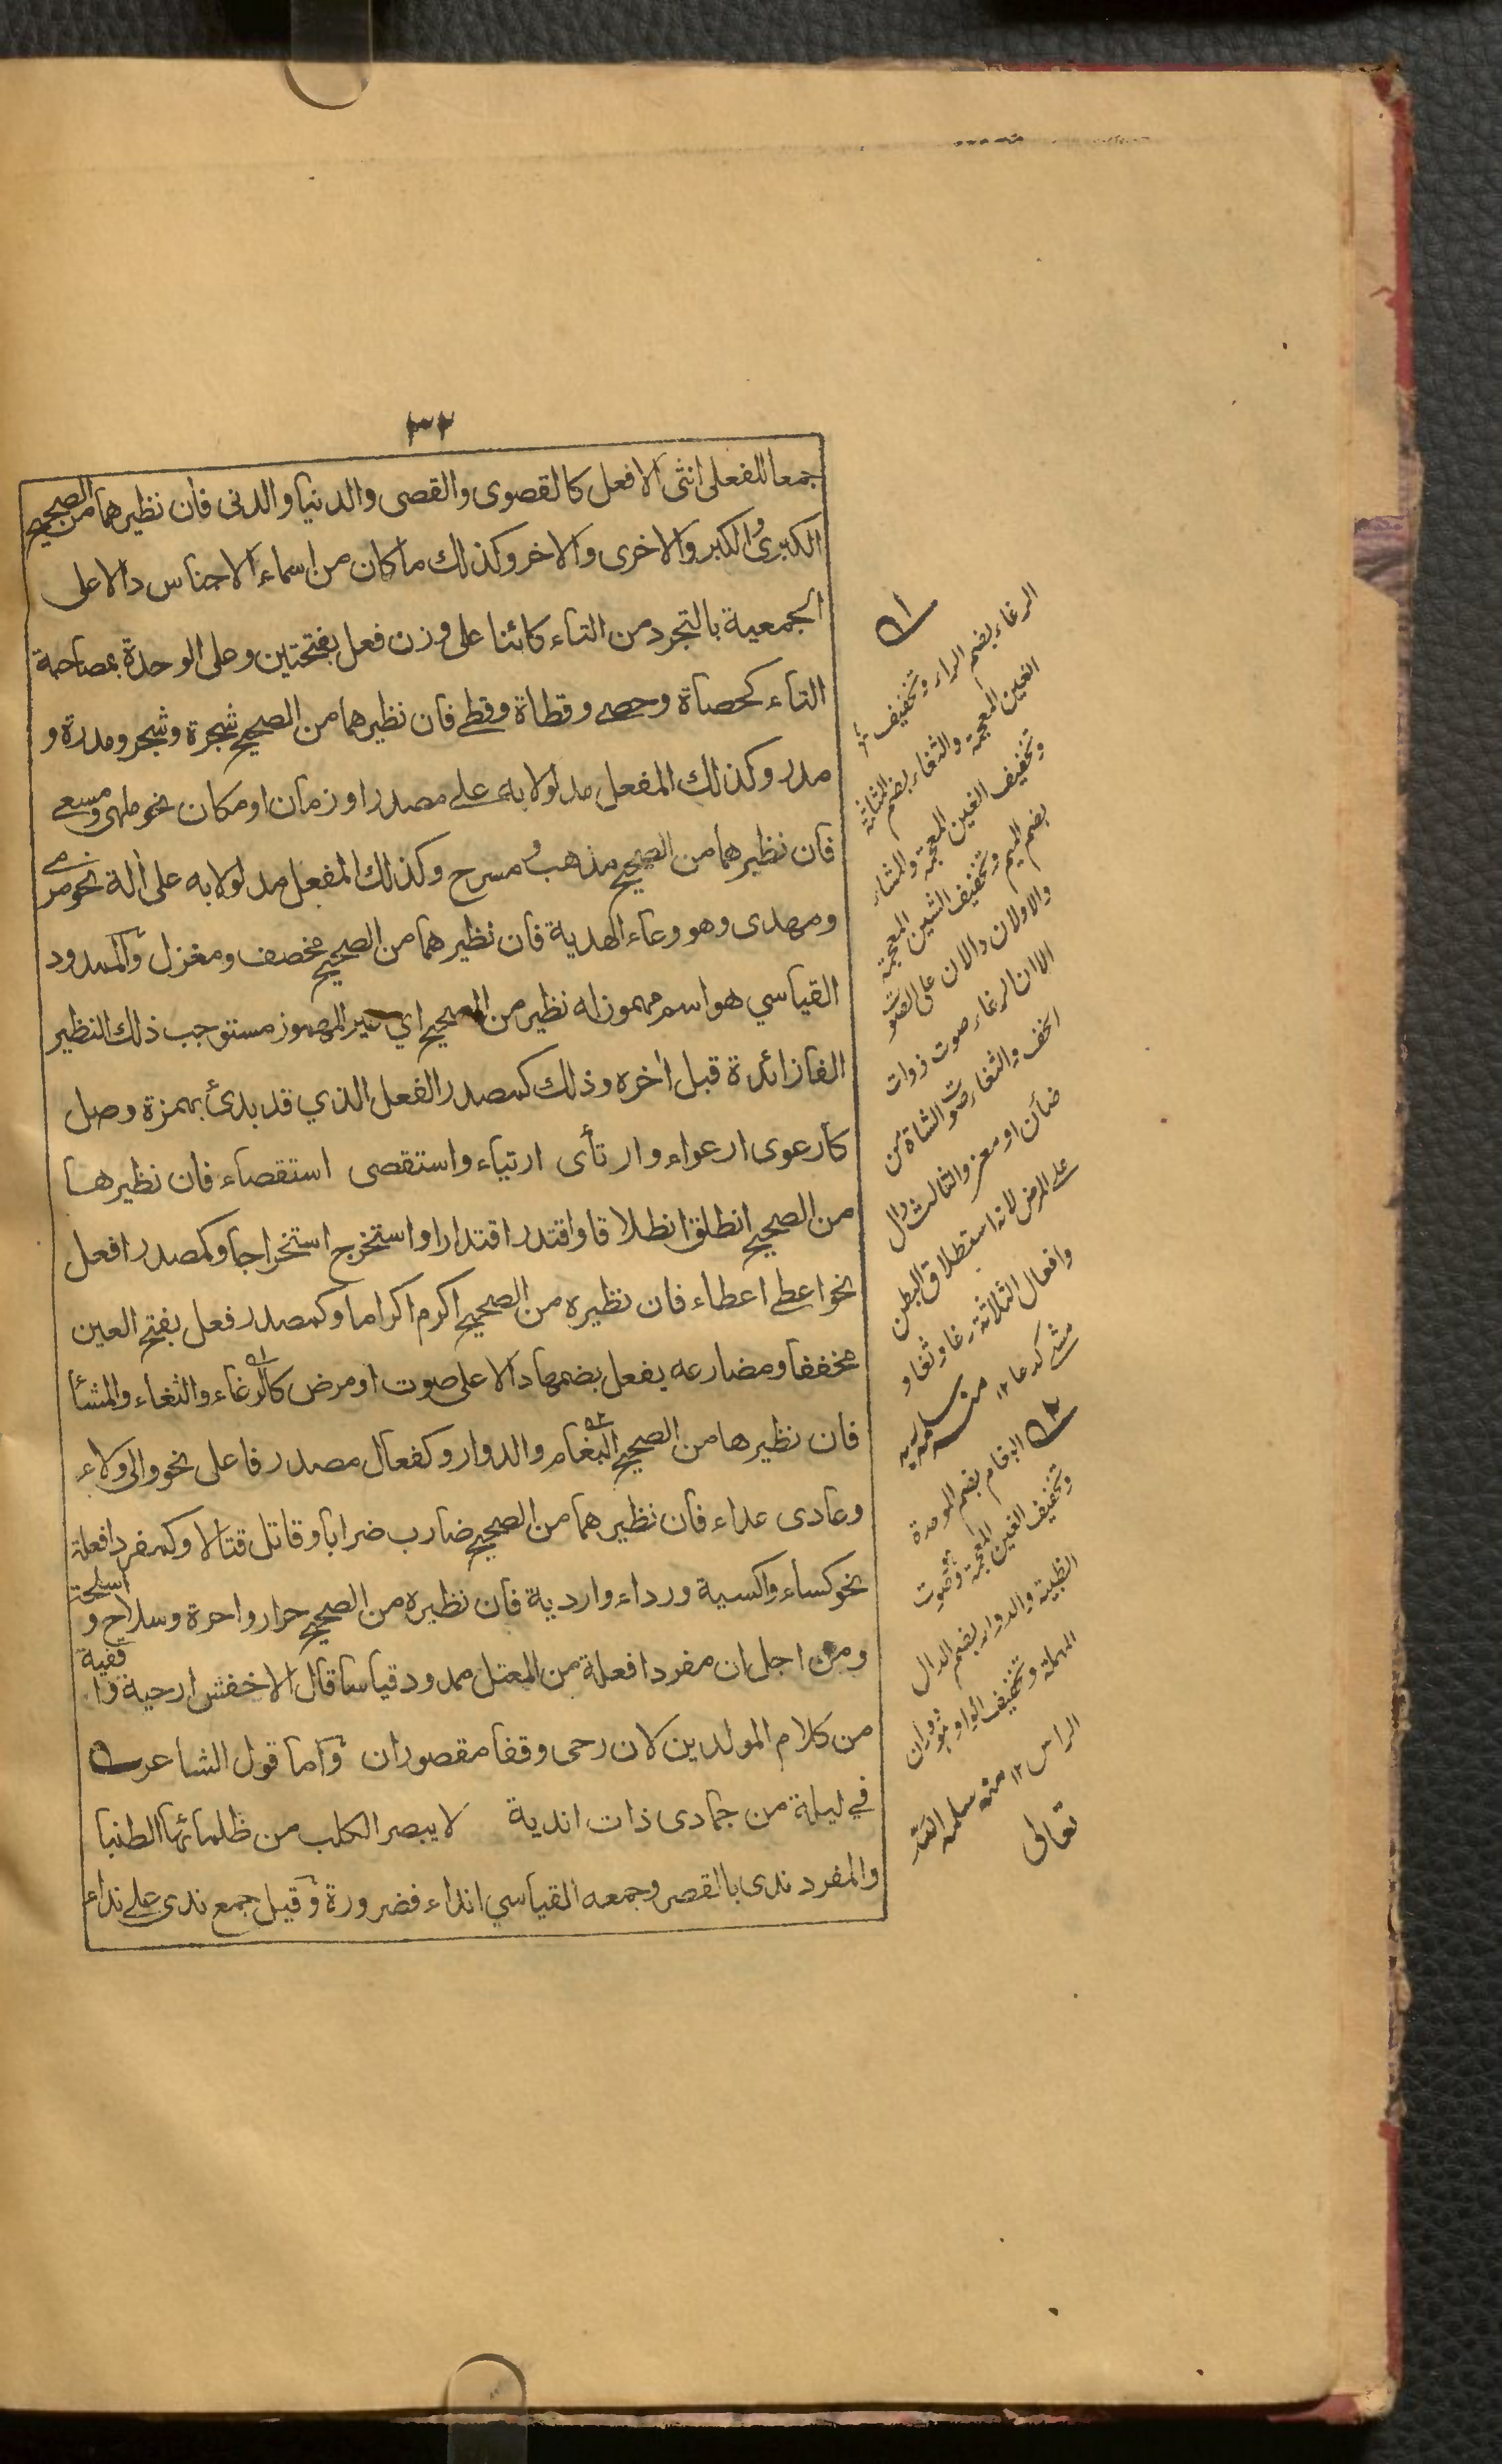 ٣٢
جمعا للفعلى انثى الافعل كالقصوى والقصى والدنيا والدنى فان نظيرهما من الصحيح
الكبرى والكبر والاخرى والاخر وكذلك ما كان من اسماء الاجناس دالا على
الجمعية بالتجرد من التاء كائنا على وزن فعل بفتحتين وعلى الوحدة بمصاحبة
التاء كحصاة وحصے وقطاة وقطے فان نظيرهما من الصحيح شجرة وشجر ومدرة و
مدر وكذلك المفعل مدلولا به علے مصدر او زمان او مكان نحو ملهى ومسعے
فان نظيرهما من الصحيح مذهب ومسرح وكذلك المفعل مدلولا به على الة نحو مرمے
ومهدى وهو وعاء الهدية فان نظيرهما من الصحيح مخصف ومغزل والممدود
القياسي هو اسم مهموز له نظير من الصحيح اي غير المهموز مستوجب ذلك النظير
الفا زائدة قبل اخره وذلك كمصدر الفعل الذي قد بدئ بهمزة وصل
كارعوى ارعواء وارتأى ارتياء واستقصى استقصاء فان نظيرها
من الصحيح انطلق انطلاقا واقتدر اقتدارا واستخرج استخراجا وكمصدر افعل
نحو اعطے اعطاء فان نظيره من الصحيح اكرم اكراما وكمصدر فعل بفتح العين
مخففا ومضارعه يفعل بضمها دالا على صوت او مرض كالرغاء والثغاء والمشأ
فان نظيرها من الصحيح البغام والدوار وكفعال مصدر فاعل نحو والى ولاء
وعادى عداء فان نظيرهما من الصحيح ضارب ضرابا وقاتل قتالا وكمفرد افعلة
نحو كساء واكسية ورداء واردية فان نظيره من الصحيح حمار واحمرة وسلاح و اسلحة
ومن اجل ان مفرد افعلة من المعتل ممدود قياسا قال الاخفش ارحية وا قفية
من كلام المولدين لان رحى وقفا مقصوران واما قول الشاعر
في ليلة من جمادى ذات اندية لا يبصر الكلب من ظلمائها الطنبا
والمفرد ندى بالقصر وجمعه القياسي انداء فضرورة وقيل جمع ندى علے نداء
الرغاء بضم الراء وتخفيف
الغين المعجمة والثغاء بضم المثلثة
وتخفيف الغين المعجمة والمشاء
بضم الميم وتخفيف الشين المعجمة
والاولان دالان على الصوت
الا ان الرغاء صوت ذوات
الخف والثغاء صوت الشاة من
ضأن او معز والثالث دال
على المرض لانه استطلاق البطن
وافعال الثلاثة رغا وثغا و
مشے كدعا ١٢ منه سلمه ربه
البغام بضم الموحدة
وتخفيف الغين المعجمة وهو صوت
الظبية والدوار بضم الدال
المهملة وتخفيف الواو هو دوران
الراس ١٢ منه سلمه الله
تعالى